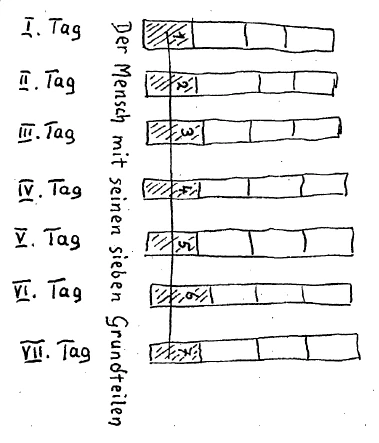 I. Tag
II. Tag
III. Tag
IV. Tag
V. Tag
VI. Tag
VII. Tag
Der Mensch mit seinen sieben Grundteilen
1
2
3
4
5
6
7